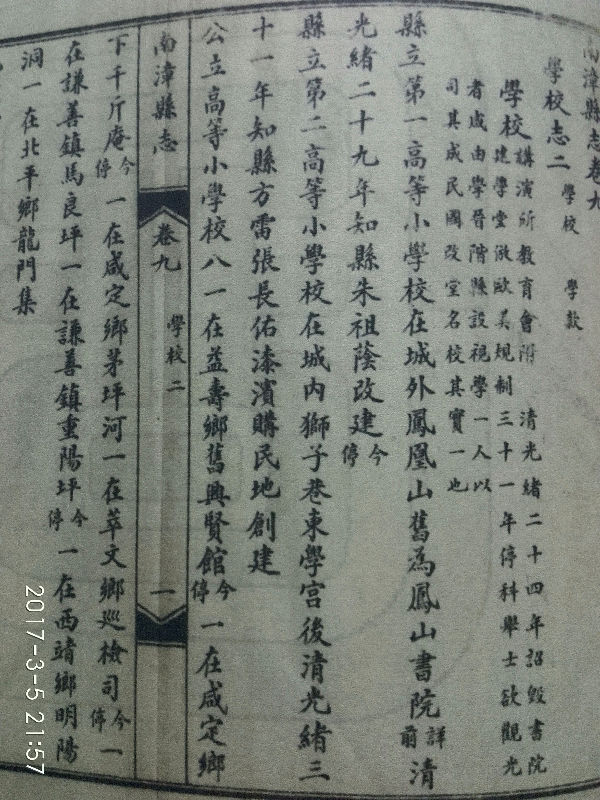 南漳縣志卷九
學校志二 學校 學款
學校講演所教育會附 清光緒二十四年詔毀書院
建學堂倣歐美規制三十一年停科舉士欲觀光
者咸由學晉階縣設視學一人以
司其成民國改堂名校其實一也
縣立第一高等小學校在城外鳳凰山舊為鳳山書院詳前清
光緒二十九年知縣朱祖蔭改建今停
縣立第二高等小學校在城內獅子巷東學宮後清光緒三
十一年知縣方雷張長佑漆濱購民地創建
公立高等小學校八一在益壽鄉舊興賢館今停一在咸定鄉
南漳縣志 卷九 學校二 一
下千斤庵今停一在咸定鄉茅坪河一在萃文鄉巡檢司今停一
在謙善鎮馬良坪一在謙善鎮重陽坪今停一在西靖鄉明陽
洞一在北平鄉龍門集
2017-3-5 21:57